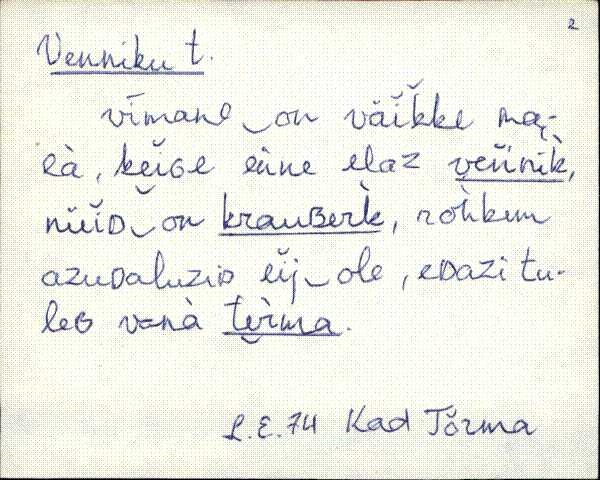 2
Venniku t.
vīmane‿on väikke ma-
ea, keige eäne elaz vennìk,
nüid‿on krauʙerk, rohkem
azuᴅaluziᴅ eij‿ole, eᴅazi tu-
leʙ vanà tèrma.
L.E.74 Kad Tõrma